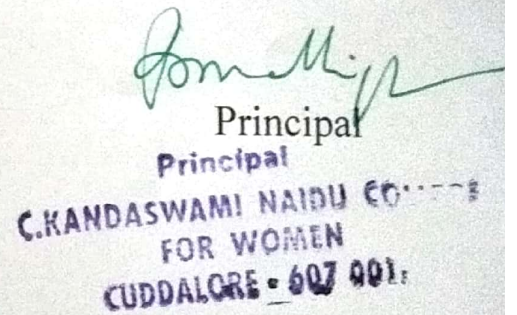 Principal
Principal
C.KANDASWAMI NAIDU
FOR WOMEN
CUDDALORE - 607 001.